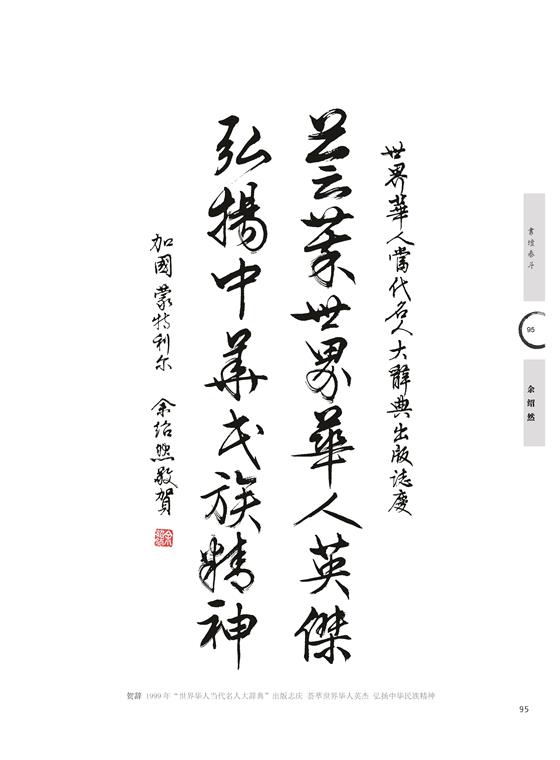 世界華人當代名人大辭典出版誌慶
荟萃世界華人英傑
弘揚中華民族精神
加國蒙特利尔 余绍然敬賀
書壇泰斗
95
余绍然
贺辞 1999 年“世界华人当代名人大辞典”出版志庆 荟萃世界华人英杰 弘扬中华民族精神
95